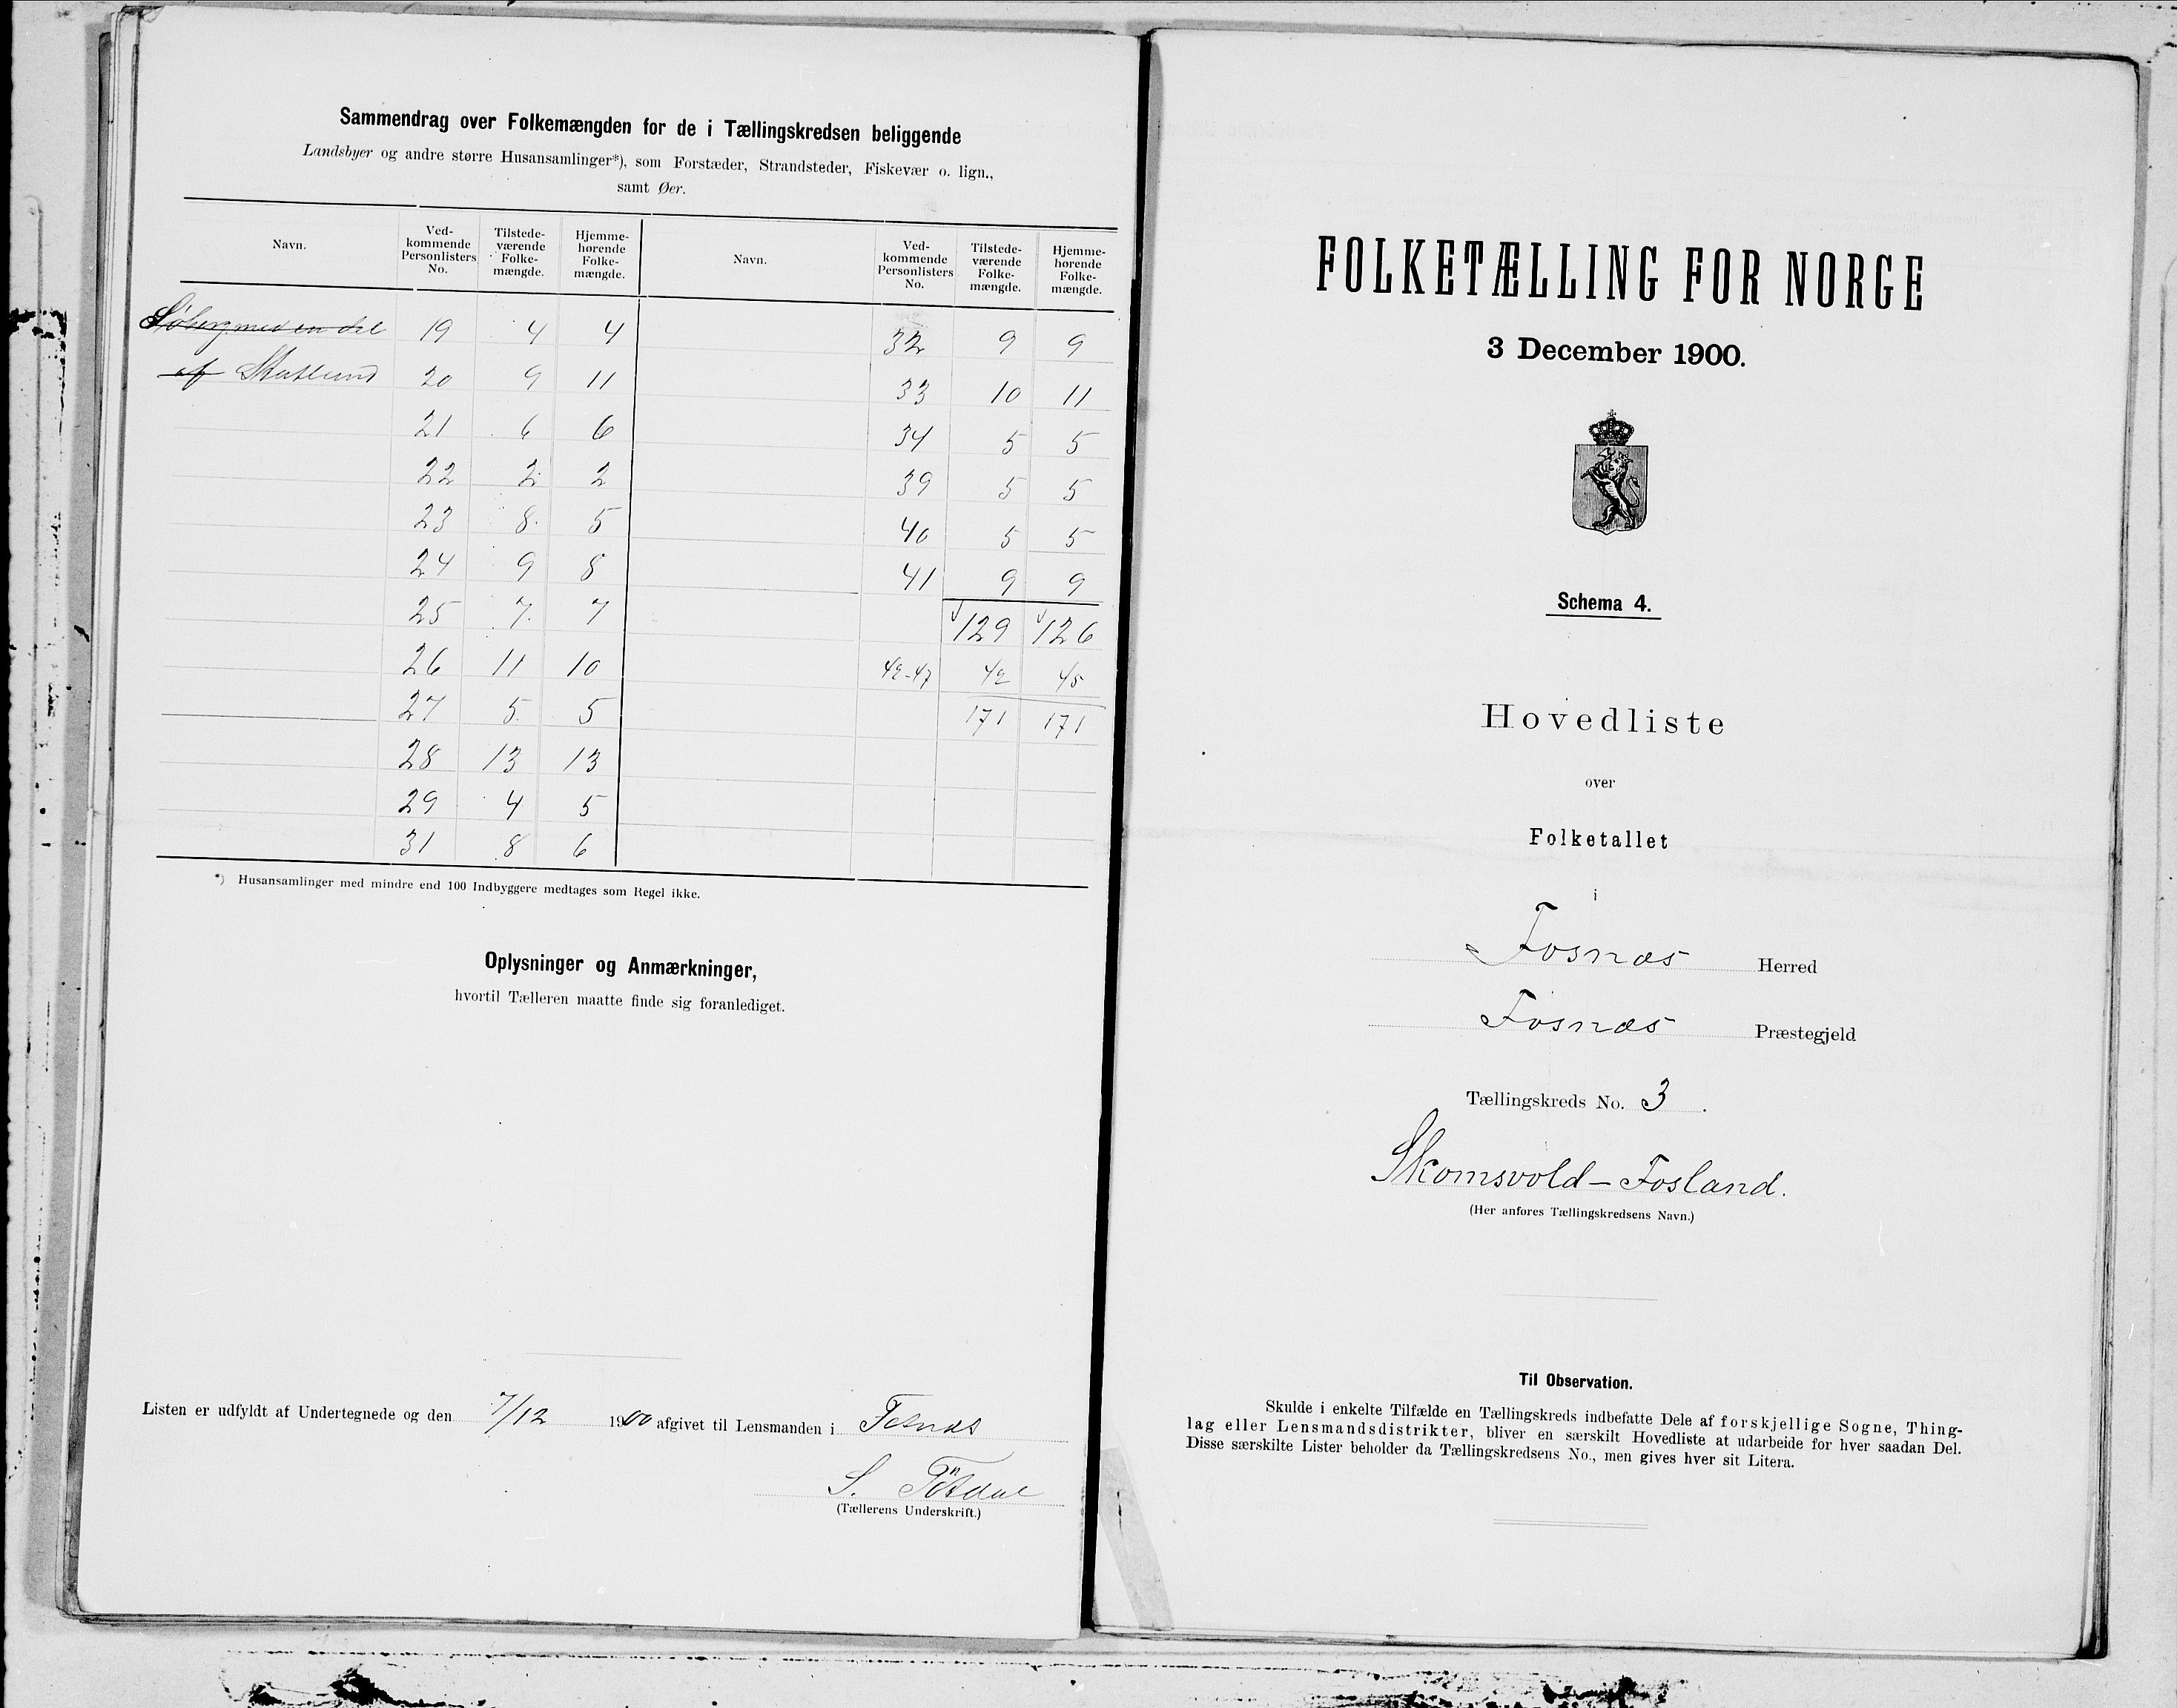 Sammendrag over Folkemængden for de i Tællingskredsen beliggende
Landsbyer og andre større Husansamlinger*), som Forstæder, Strandsteder, Fiskevær o. lign.,
samt Øer.
Navn. Ved-kommende Personlisters No. Tilstede-værende Folke-mængde. Hjemme-hørende Folke-mængde. Navn. Ved-kommende Personlisters No. Tilstede-værende Folke-mængde. Hjemme-hørende Folke-mængde.
Söberg med en del 19 4 4 32 9 9
af Skatlund 20 9 11 33 10 11
21 6 6 34 5 5
22 2 2 39 5 5
23 8 5 40 5 5
24 9 8 41 9 9
25 7 7 129 126
26 11 10 42-47 42 45
27 5 5 171 171
28 13 13
29 4 5
31 8 6
*) Husansamlinger med mindre end 100 Indbyggere medtages som Regel ikke.
Oplysninger og Anmærkninger,
hvortil Tælleren maatte finde sig foranlediget.
Listen er udfyldt af Undertegnede og den 7/12 1900 afgivet til Lensmanden i Fosnæs
S.
(Tællerens Underskrift.)
FOLKETÆLLING FOR NORGE
3 December 1900.
Schema 4.
Hovedliste
over
Folketallet
i
Fosnæs Herred
Fosnæs Præstegjeld
Tællingskreds No. 3.
Skomsvold-Fosland.
(Her anføres Tællingskredsens Navn.)
Til Observation.
Skulde i enkelte Tilfælde en Tællingskreds indbefatte Dele af forskjellige Sogne, Thing-
lag eller Lensmandsdistrikter, bliver en særskilt Hovedliste at udarbeide for hver saadan Del.
Disse særskilte Lister beholder da Tællingskredsens No., men gives hver sit Litera.